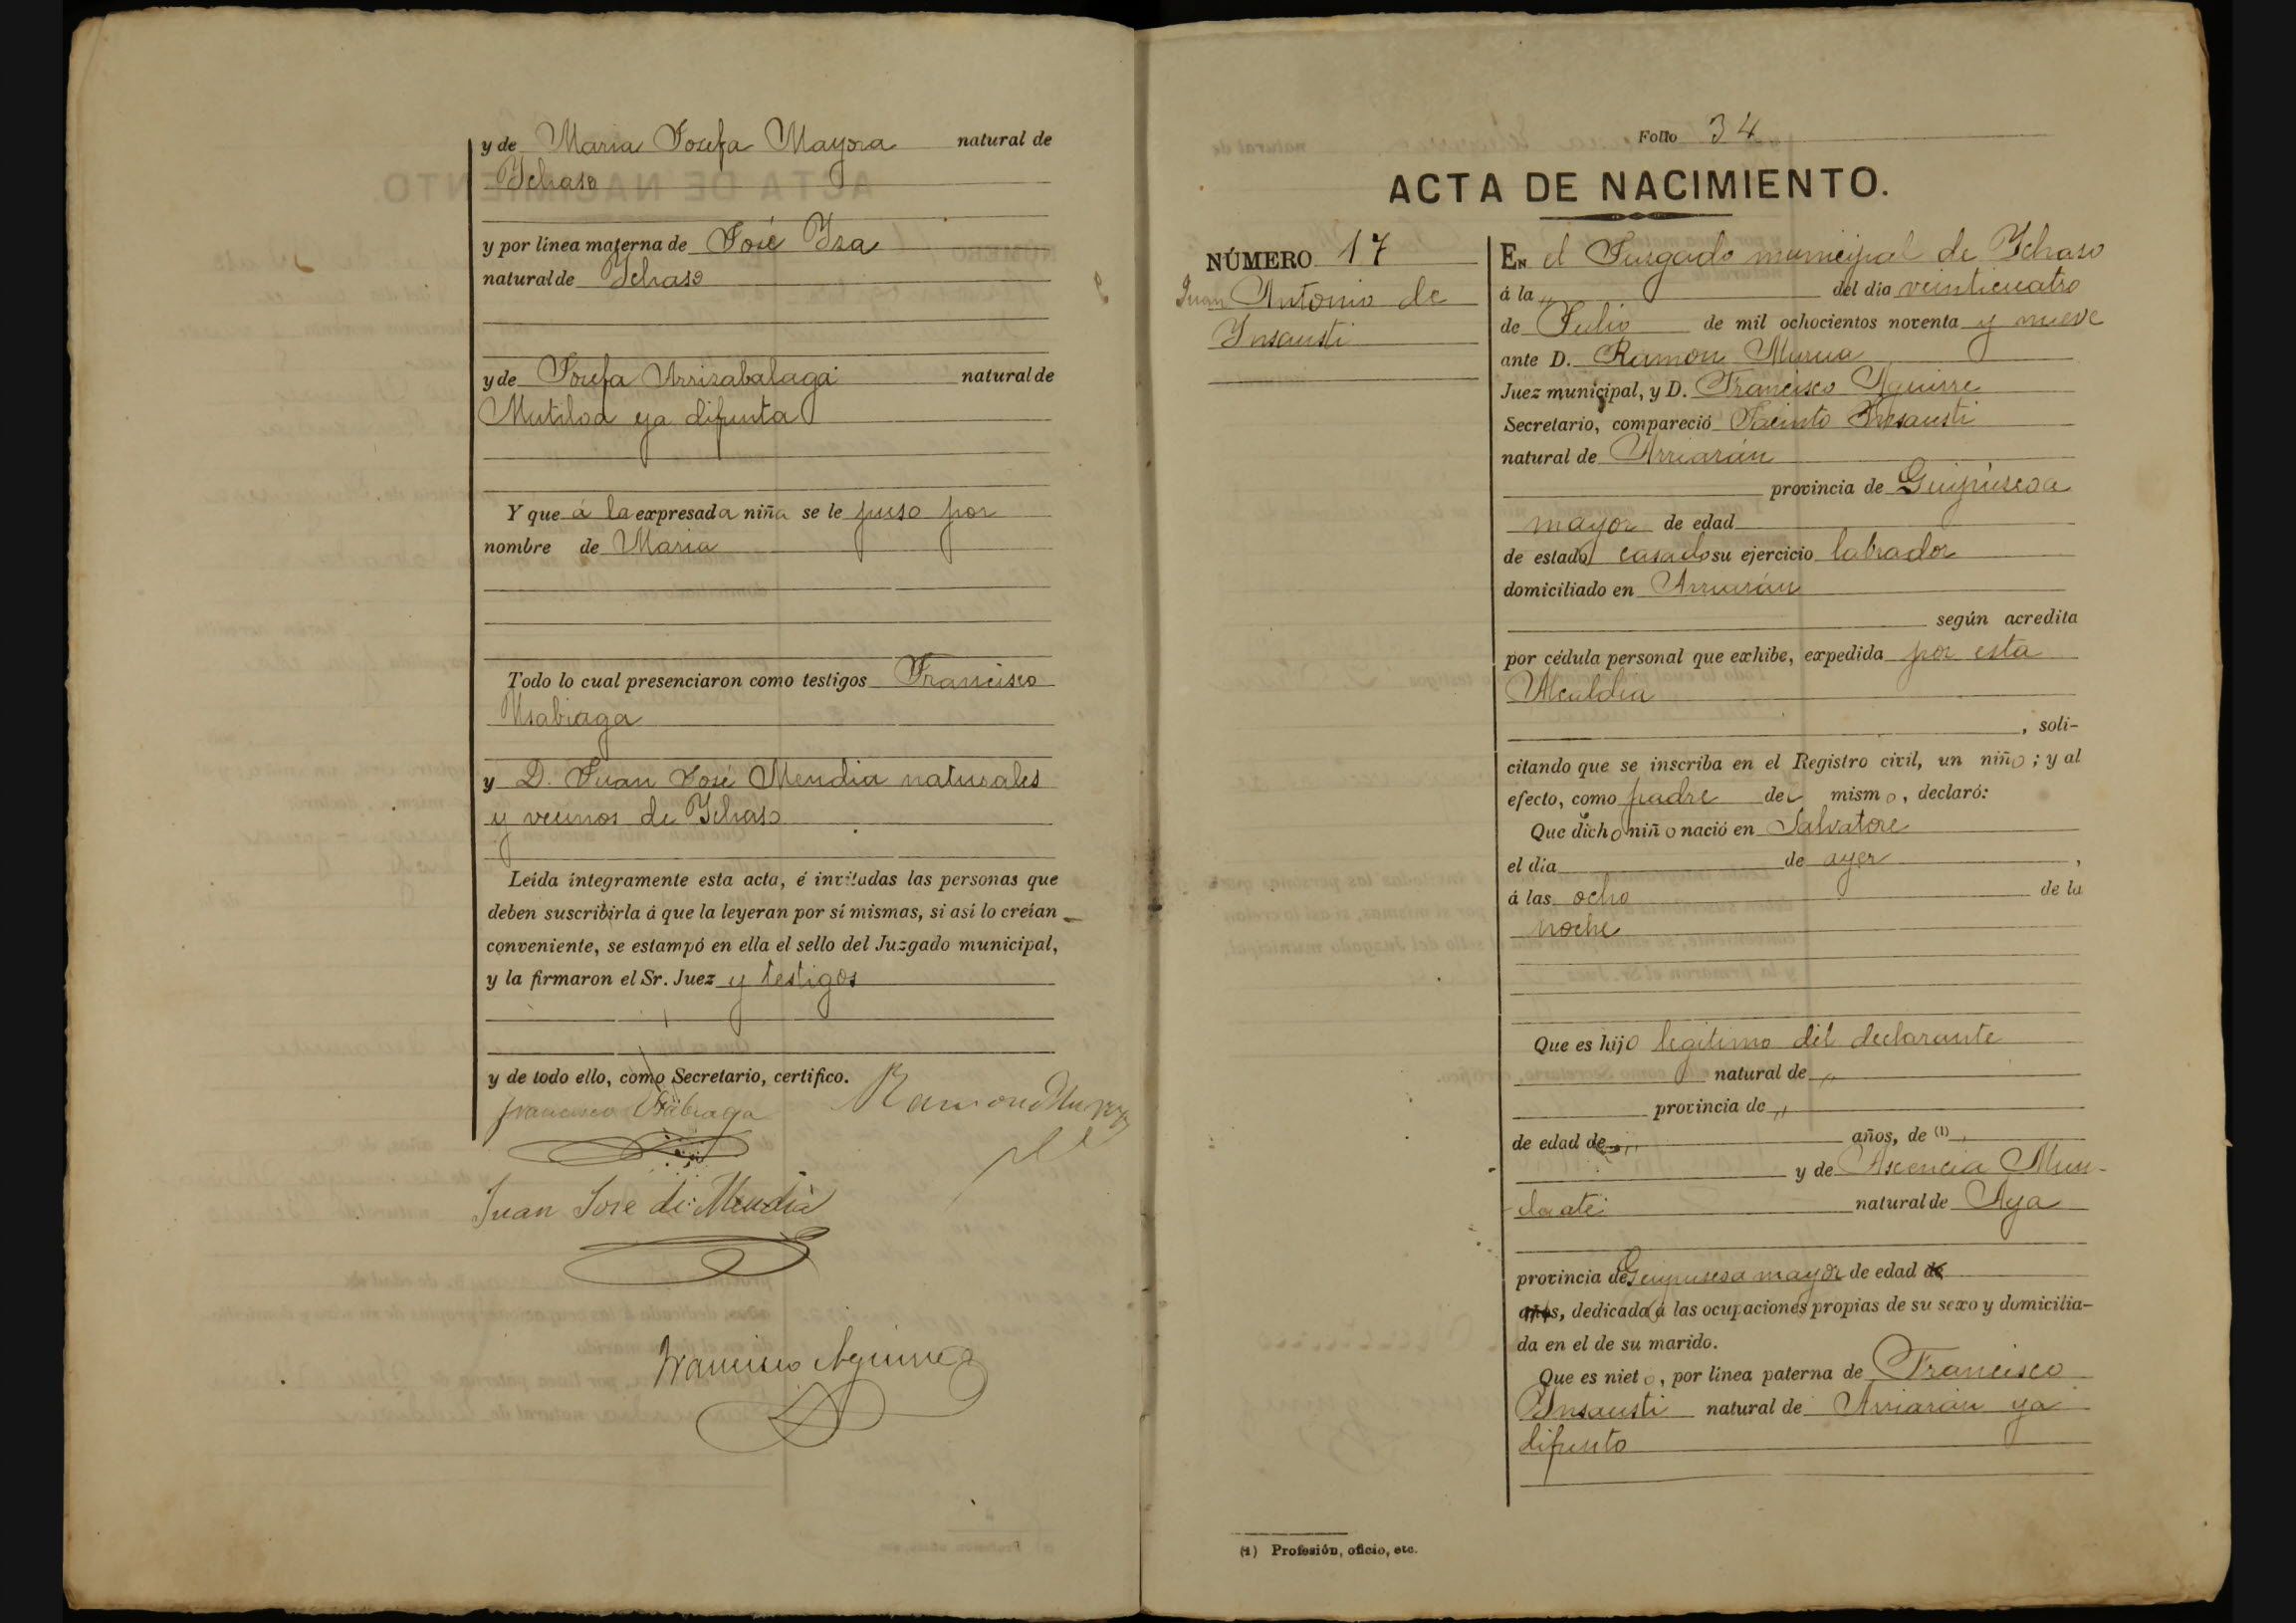 y de Maria Josefa Mayora natural de
Ychaso
y por línea materna de José Yza
natural de Ychaso
y de Josefa Arrizabalaga natural de
Mutiloa ya difunta
Y que á la expresada niña se le puso por
nombre de Maria
Todo lo cual presenciaron como testigos Francisco
Usabiaga
y D. Juan José Mendia naturales
y vecinos de Ychaso
Leída íntegramente esta acta, é invitadas las personas que
deben suscribirla á que la leyeran por sí mismas, si así lo creían
conveniente, se estampó en ella el sello del Juzgado municipal,
y la firmaron el Sr. Juez y testigos
y de todo ello, como Secretario, certifico.
Francisco Usabiaga Ramon Murua
Juan Jose de Mendia
Francisco Aguirre
Folio 34
ACTA DE NACIMIENTO.
NÚMERO 17
Juan Antonio de
Ynsausti
EN el Juzgado municipal de Ychaso
á la „ del día veinticuatro
de Julio de mil ochocientos noventa y nueve
ante D. Ramon Murua
Juez municipal, y D. Francisco Aguirre
Secretario, compareció Jacinto Ynsausti
natural de Arriarán
provincia de Guipúscoa
mayor de edad
de estado casado su ejercicio labrador
domiciliado en Arriarán
según acredita
por cédula personal que exhibe, expedida por esta
Alcaldia
, soli-
citando que se inscriba en el Registro civil, un niño; y al
efecto, como padre del mismo, declaró:
Que dicho niño nació en Salvatore
el día de ayer,
á las ocho de la
noche
Que es hijo legitimo del declarante
natural de „
provincia de „
de edad de „ años, de (1) „
y de Ascencia Mun-
doate natural de Aya
provincia de Guipuscoa mayor de edad de
años, dedicada á las ocupaciones propias de su sexo y domicilia-
da en el de su marido.
Que es nieto, por línea paterna de Francisco
Ynsausti natural de Arriarán ya
difunto
(1) Profesión, oficio, etc.